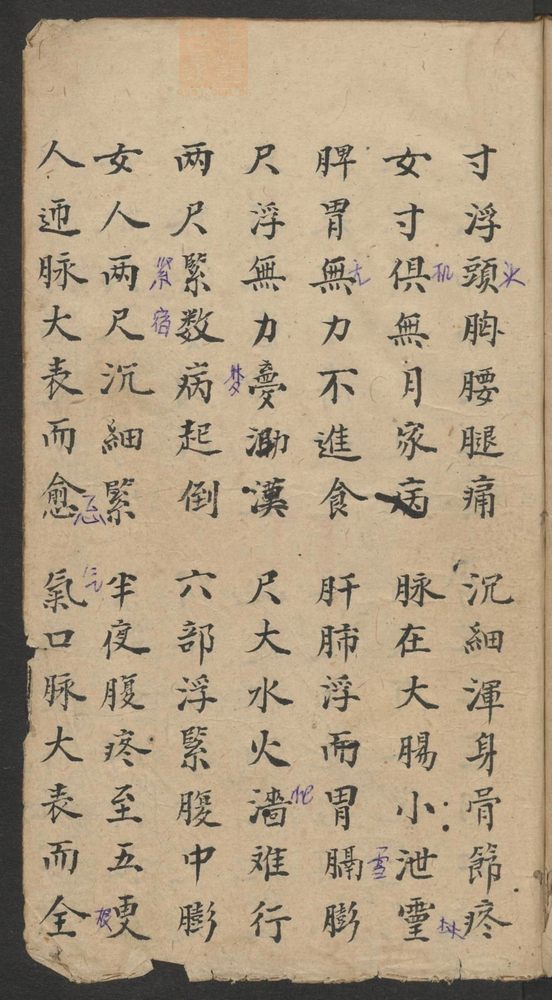 寸浮頭胸腰腿痛 沉細渾身骨節疼
女寸俱無月家病 脉在大腸小泄霊
脾胃無力不進食 肝肺浮而胃膈膨
尺浮無力憂泐漠 尺大水火濇难行
两尺緊数病起倒 六部浮緊腹中膨
女人两尺沉細緊 半夜腹疼至五更
人迊脉大表而愈 氣口脉大表而全